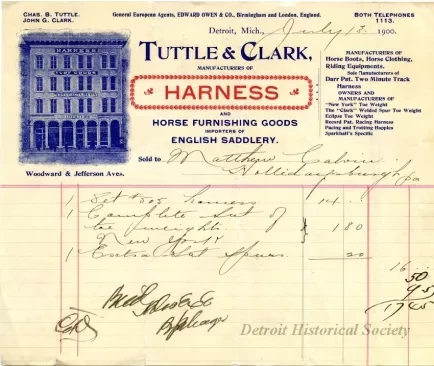 CHAS. B. TUTTLE.
JOHN G. CLARK.
General European Agents, EDWARD OWEN & CO., Birmingham and London, England.
BOTH TELEPHONES
1113.
Detroit, Mich., July 13 1900.
TUTTLE & CLARK,
MANUFACTURERS OF
HARNESS
AND
HORSE FURNISHING GOODS
IMPORTERS OF
ENGLISH SADDLERY.
MANUFACTURERS OF
Horse Boots, Horse Clothing,
Riding Equipments.
Sole Manufacturers of
Darr Pat. Two Minute Track
Harness
OWNERS AND
MANUFACTURERS OF
"New York" Toe Weight
The "Clark" Welded Spur Toe Weight
Eclipse Toe Weight
Record Pat. Racing Harness
Pacing and Trotting Hopples
Sparkhall's Specific
HARNESS
Woodward & Jefferson Aves.
Sold to Matthew Calvin
Hollidaysburgh Pa
1 Set #205 harness 14 -
1 Complete Set of
toe weights 1 80
New York
1 Extra Set Spurs. 20
16
50
95
17 45
Detroit Historical Society